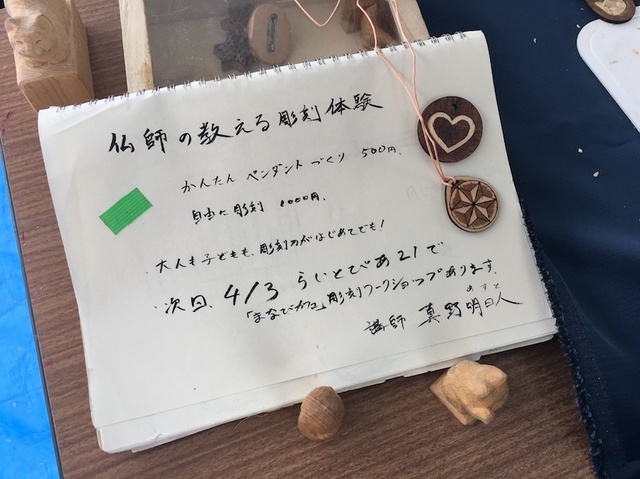 仏師の教える彫刻体験
かんたん ペンダントづくり 500円.
自由に彫刻 1000円.
・大人も子どもも、彫刻刀がはじめてでも!
・次回、4/3 らいとぴあ21で
「まなびカフェ」彫刻ワークショップあります.
講師 真野明日人
あすと